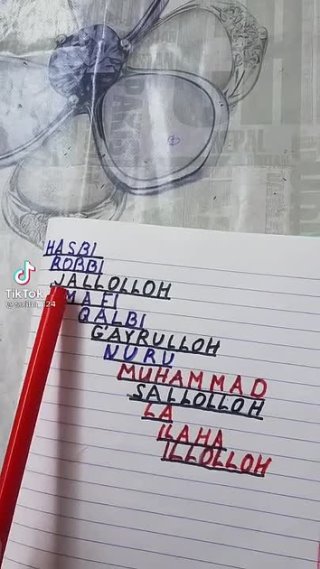 HASBI
ROBBI
JALLOLLOH
MAFI
QALBI
G'AYRULLOH
NURU
MUHAMMAD
SALLOLLOH
LA
ILAHA
ILLOLLOH
TikTok